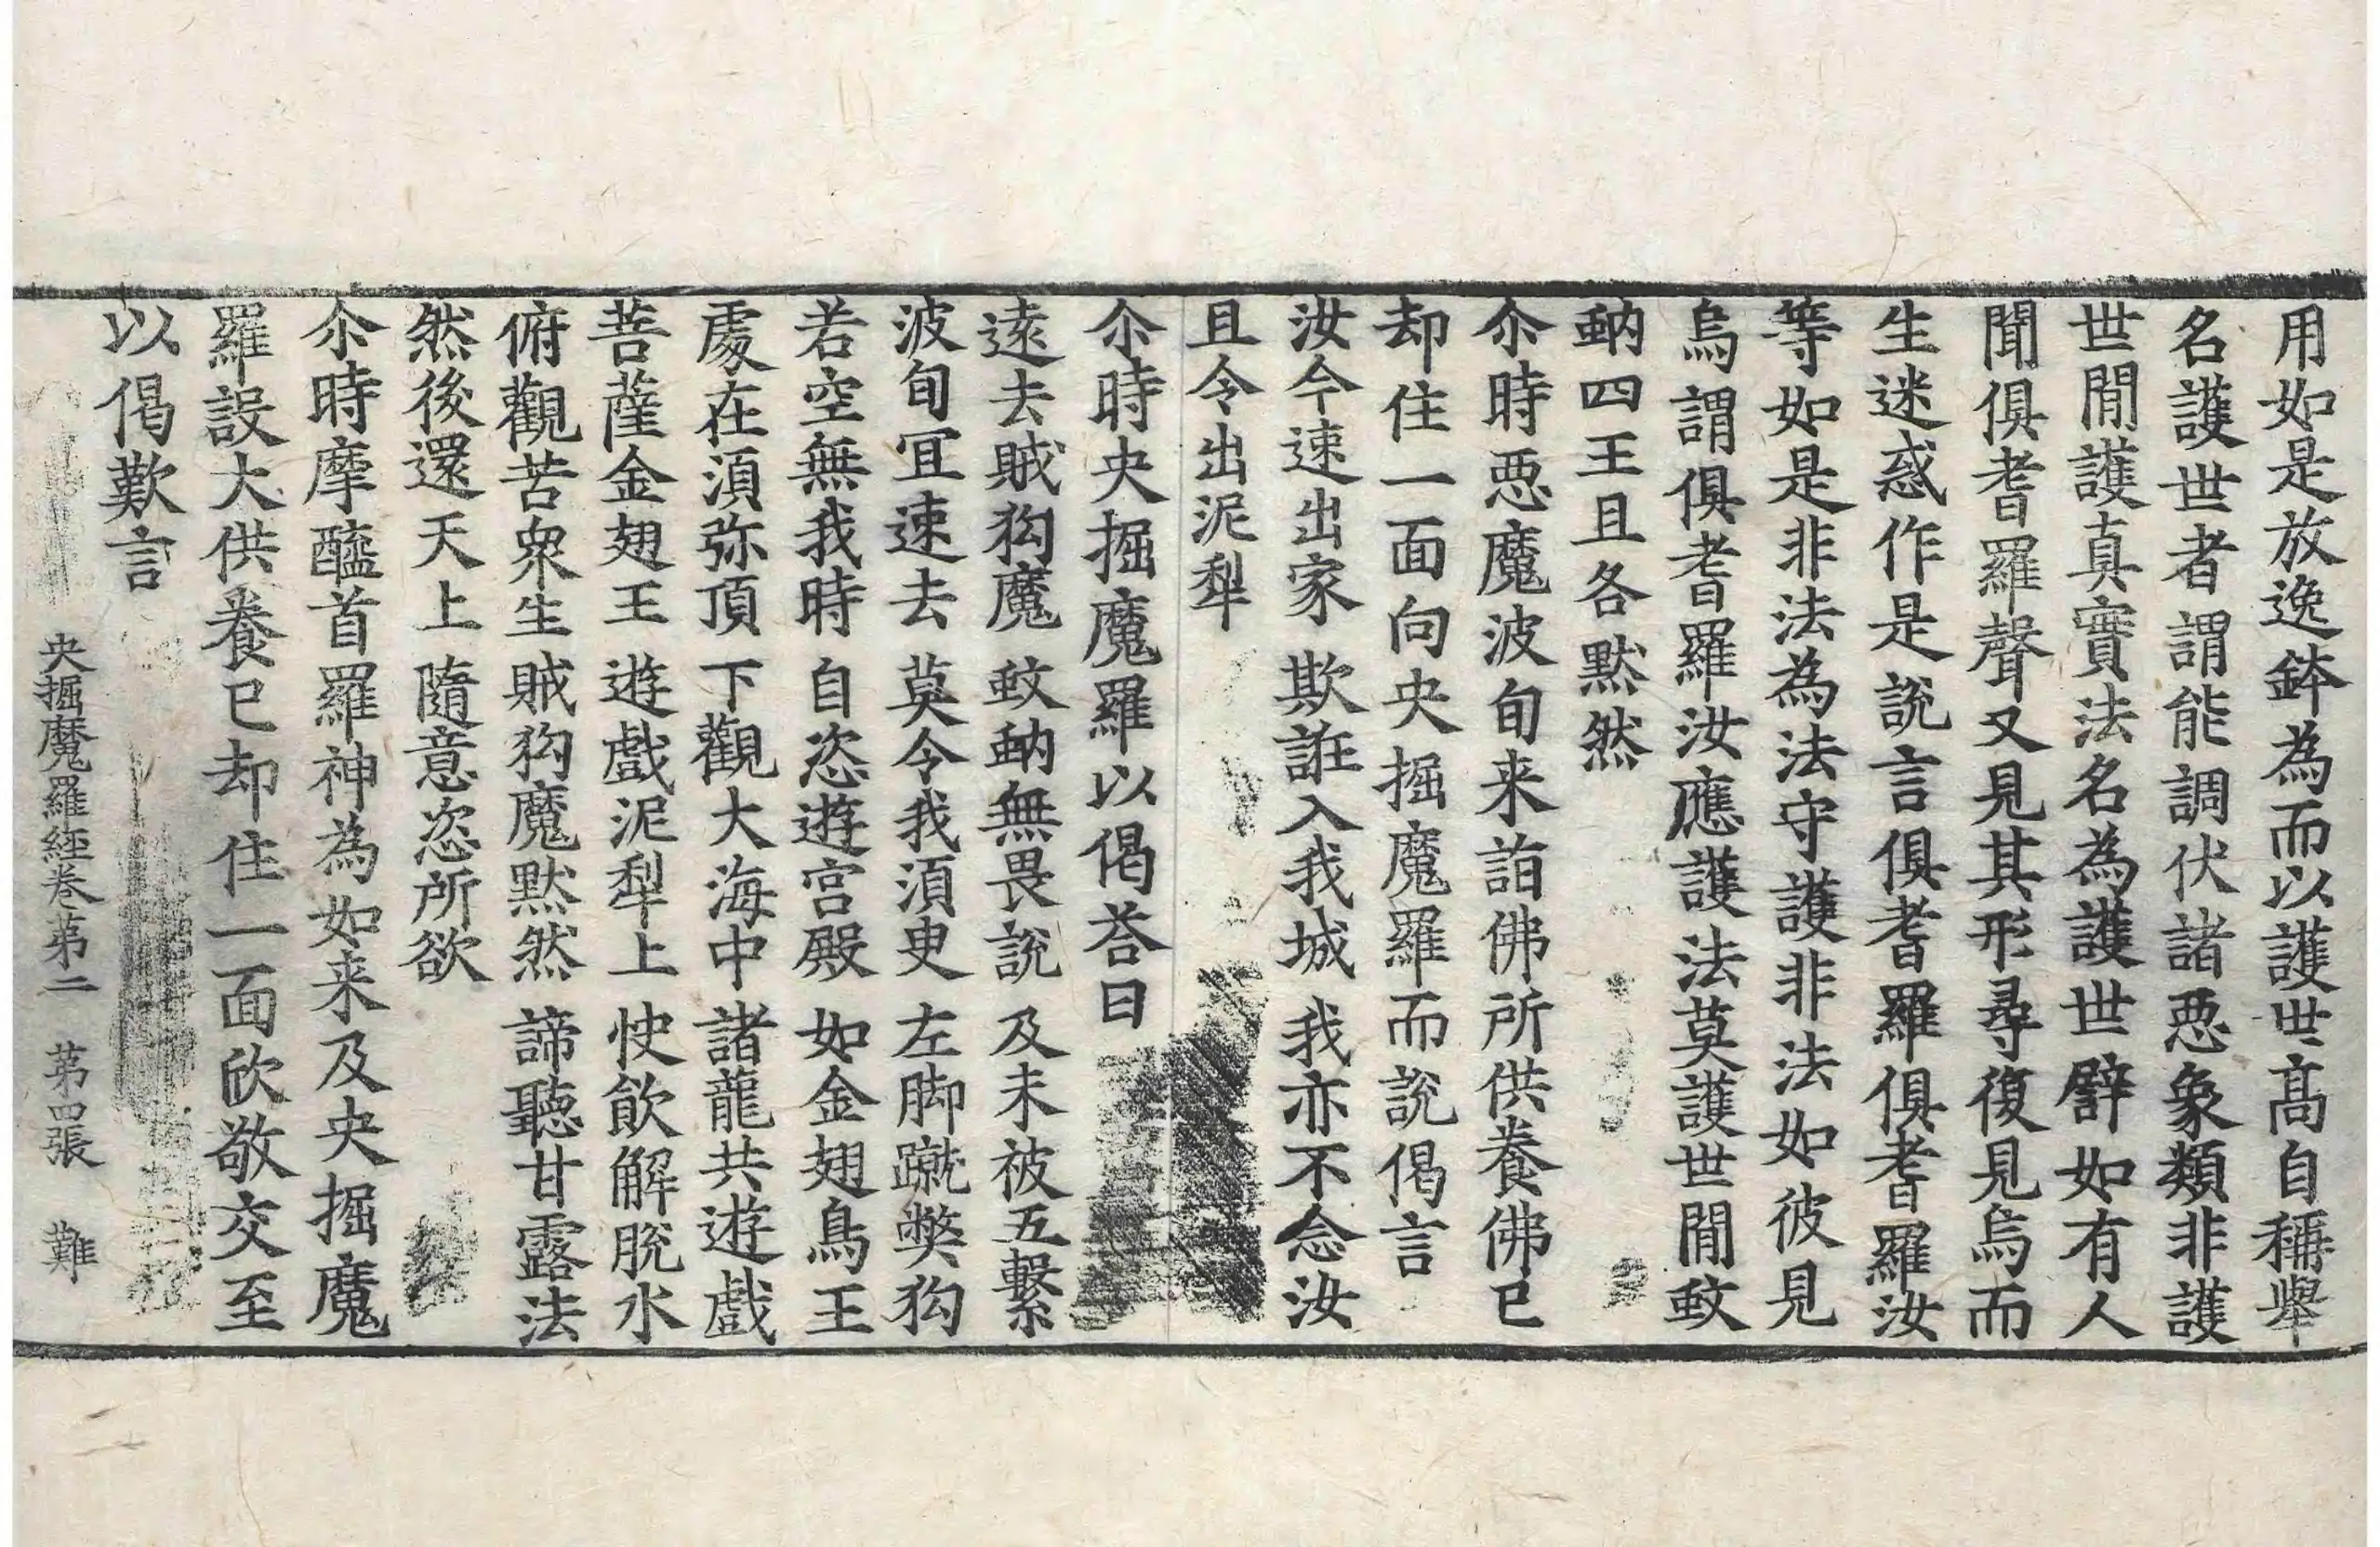 用如是放逸鉢為而以護世髙自稱舉
名護世者謂能調伏諸悪象類非護
世閒護真實法名為護世譬如有人
聞俱耆羅聲又見其形尋復見烏而
生迷惑作是說言俱耆羅俱耆羅汝
等如是非法為法守護非法如彼見
烏謂俱耆羅汝應護法莫護世閒蚊
蚋四王且各默然
尒時悪魔波旬来詣佛所供養佛已
却住一面向央掘魔羅而說偈言
汝今速出家 欺誑入我城 我亦不念汝
且令出泥犁
尒時央掘魔羅以偈荅曰
遠去賊狗魔 蚊蚋無畏說 及未被五繫
波旬冝速去 莫令我須臾 左脚蹴弊狗
若空無我時 自恣遊宫殿 如金翅鳥王
處在須弥頂 下觀大海中 諸龍共遊戲
菩薩金翅王 遊戲泥犁上 快飲解脫水
俯觀苦衆生 賊狗魔默然 諦聽甘露法
然後還天上 隨意恣所欲
尒時摩醯首羅神為如来及央掘魔
羅設大供養已却住一面欣敬交至
以偈歎言
央掘魔羅經卷苐二 苐四張 難